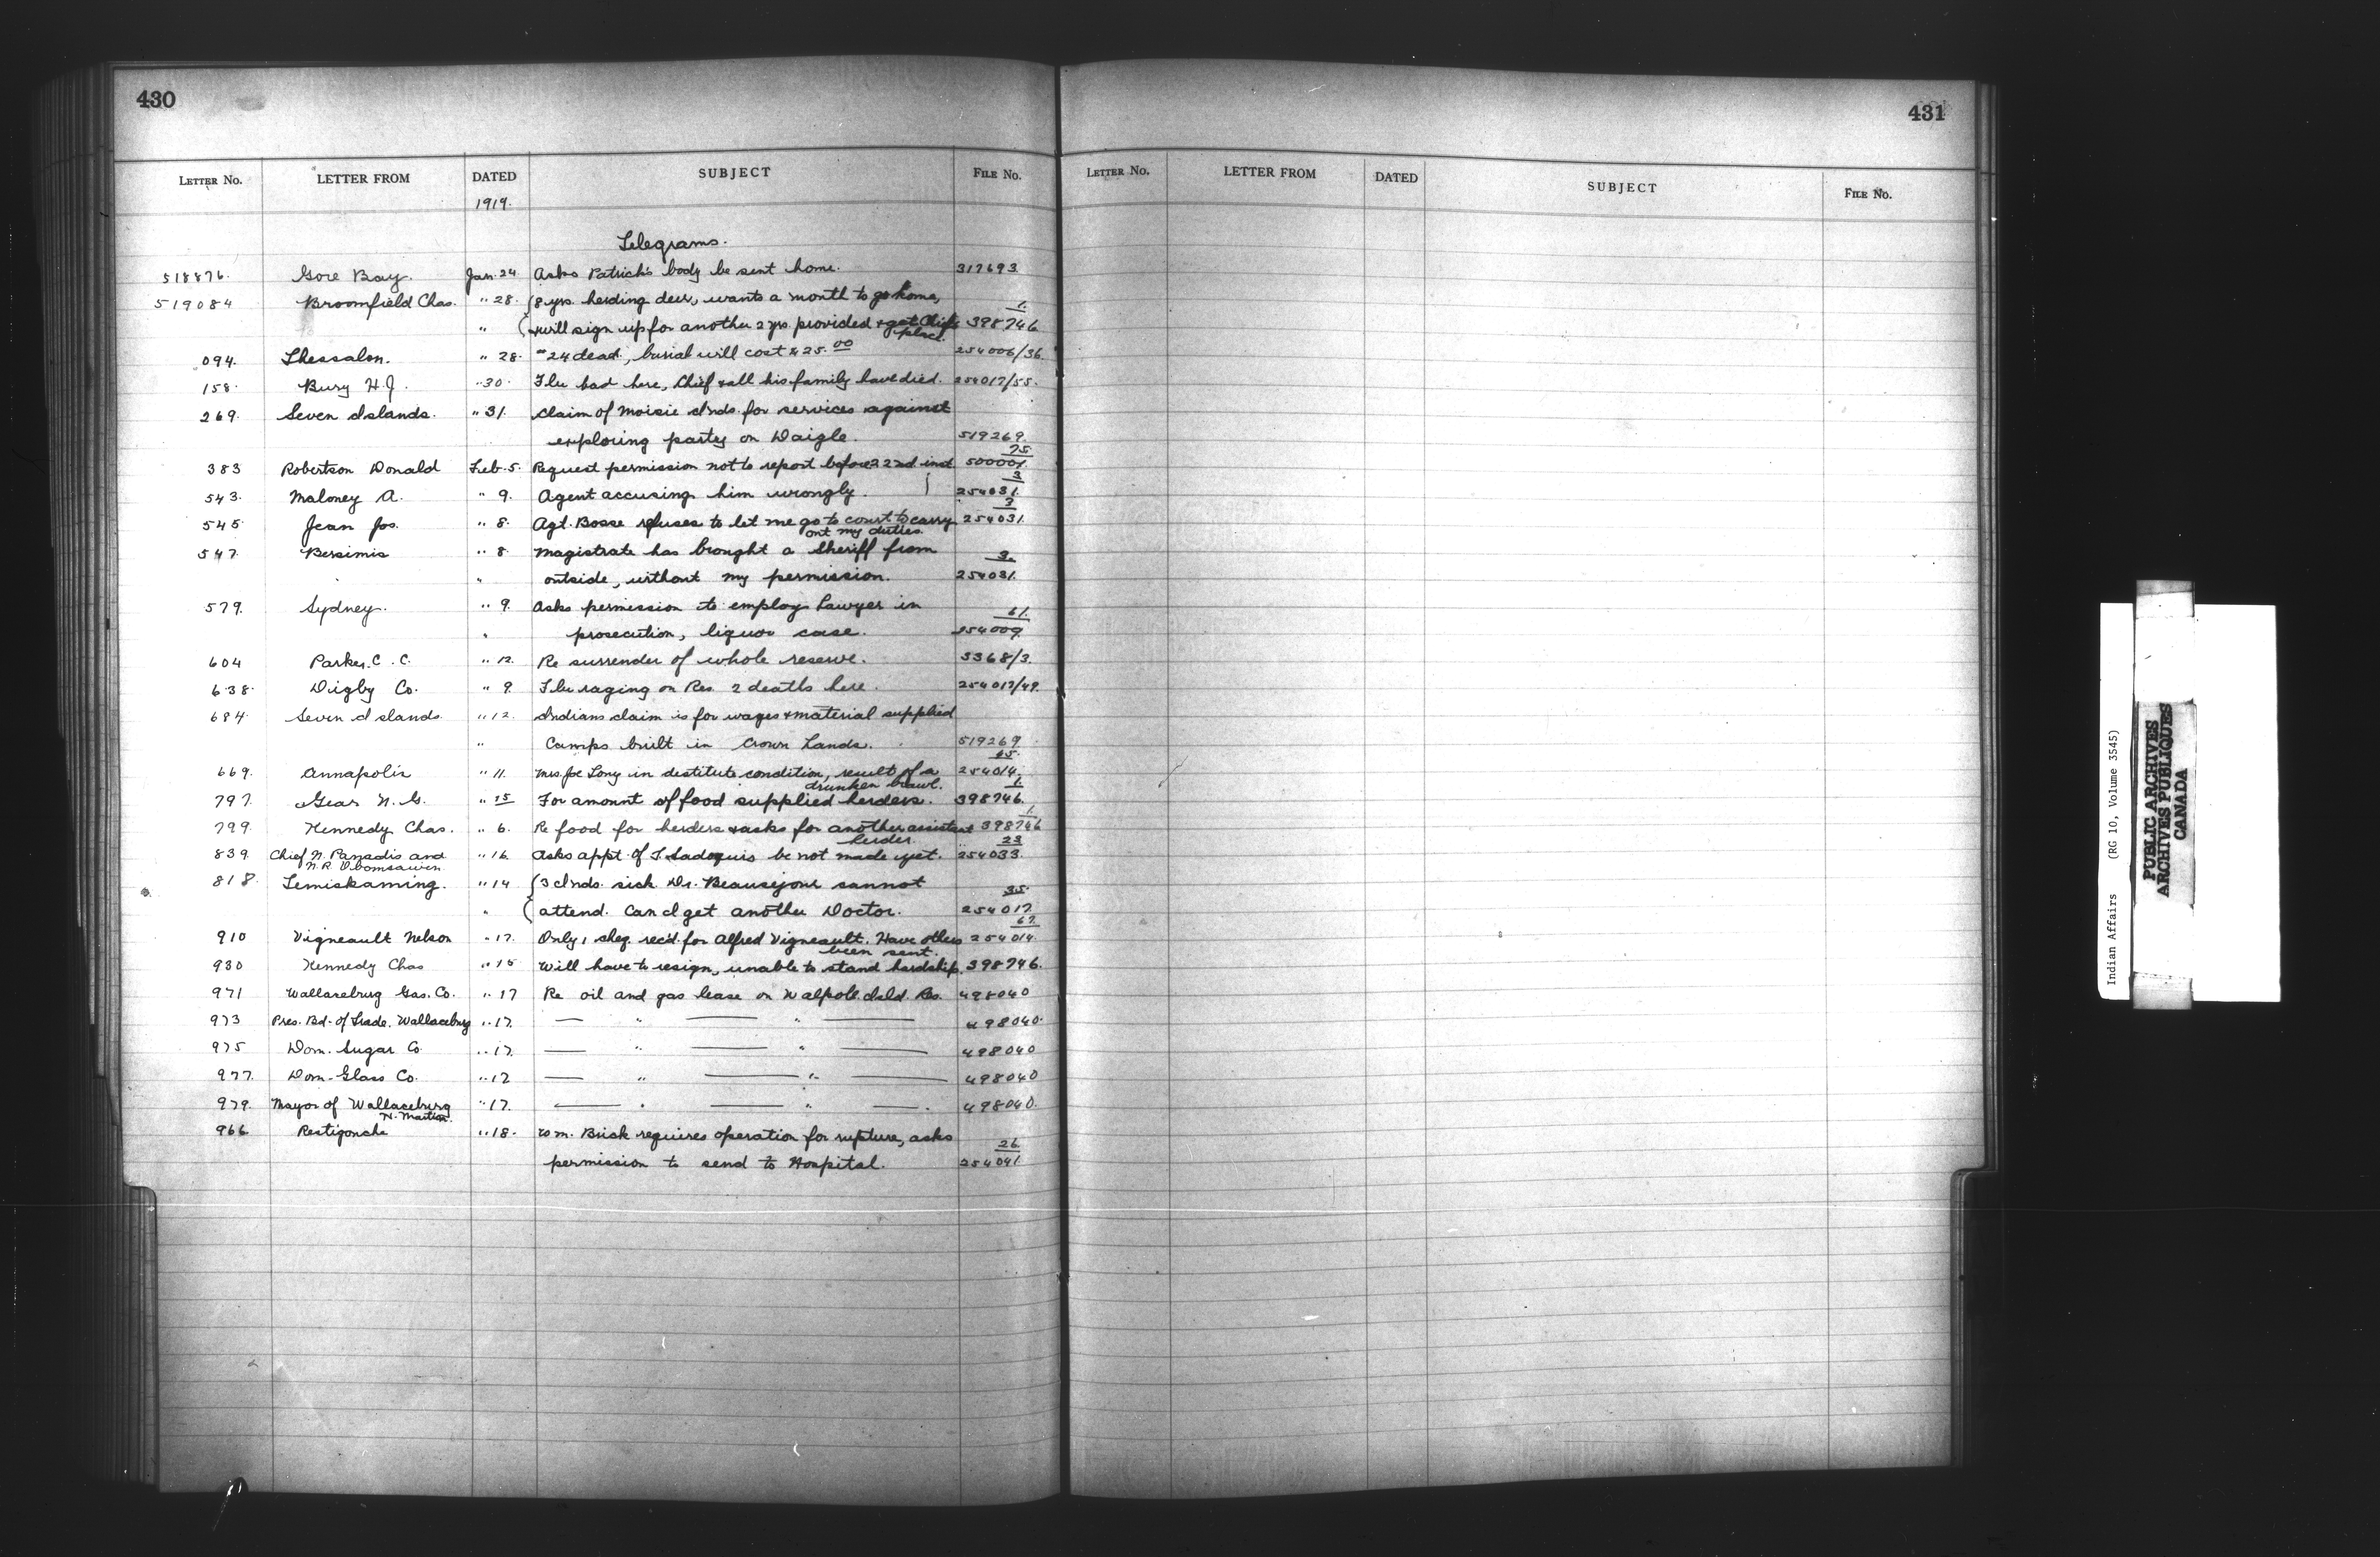 430
LETTER No. LETTER FROM DATED SUBJECT FILE No.
1919.
Telegrams.
518876. Gore Bay. Jan. 24 Asks Patrick's body be sent home. 317693
519084 Broomfield Chas. " 28. (8 yrs. herding deer, wants a month to go home, 1.
" (& will sign up for another 2 yrs. provided & get Chief's 398746
place.
094. Thessalon. " 28. "24 dead, burial will cost $25.00 254006/36.
158. Bury H.J. " 30. Flu bad here, Chief & all his family have died. 254017/55.
269. Seven Islands. " 31. Claim of Moisie Inds. for services against
exploring party on Daigle. 519269.
75
383 Robertson Donald Feb. 5. Request permission not to report before 22nd inst. 500001.
3
543. Maloney A. " 9. Agent accusing him wrongly. 254031.
3
545 Jean Jos. " 8. Agt. Bosse refuses to let me go to court to carry 254031.
out my duties.
547. Bersimis " 8. Magistrate has brought a Sheriff from 3.
" outside, without my permission. 254031.
579. Sydney. " 9. Asks permission to employ Lawyer in 61.
" prosecution, liquor case. 254009
604 Parker. C. C. " 12. Re surrender of whole reserve. 3368/3.
638. Digby Co. " 9. Flu raging on Res. 2 deaths here. 254017/49.
684. Seven Islands " 12. Indians claim is for wages & material supplied
" Camps built in Crown Lands. 519269
45.
669. Annapolis " 11. Mrs. Joe Long in destitute condition, result of a 254014.
drunken brawl. 1.
797. Gear N. G. " 15 For amount of food supplied herders. 398746.
1.
799. Kennedy Chas. " 6. Re food for herders & asks for another assistant 398746
herder. 23
839. Chief N. and " 16. Asks appt. of T. Sadoquis be not made yet. 254033.
N. R.
818. Temiskaming. " 14 (3 Inds. sick Dr. Beausejour cannot 35.
" (attend. Can I get another Doctor. 254017.
67.
910 Vigneault Nelson " 17. Only 1 cheq. rec'd. for Alfred Vigneault. Have others 254014.
been sent.
930 Kennedy Chas " 15 Will have to resign, unable to stand hardship. 398746.
971 Wallaceburg Gas. Co. " 17 Re oil and gas lease on Walpole Isld. Res. 498040
973 Pres. Bd. of Trade. Wallaceburg " 17. — " — " — 498040.
975 Dom. Sugar Co. " 17. — " — " — 498040
977. Dom. Glass Co. " 17 — " — " — 498040
979. Mayor of Wallaceburg " 17. — " — " — . 498040.
N. Martin.
966 Restigouche " 18. Wm. Brisk requires operation for rupture, asks 26.
permission to send to Hospital. 254041.
431
LETTER No. LETTER FROM DATED SUBJECT FILE No.
Indian Affairs (RG 10, Volume 3545)
PUBLIC ARCHIVES
ARCHIVES PUBLIQUES
CANADA